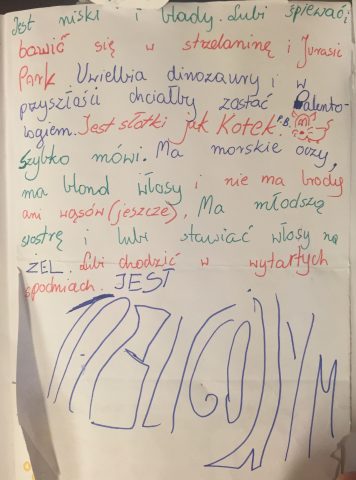 Jest niski i blady. Lubi śpiewać i
bawić się w strzelaninę i Jurasic
Park. Uwielbia dinozaury i w
przyszłości chciałby zostać Palento-
logiem. Jest słatki jak Kotek. P.B.
Szybko mówi. Ma morskie oczy,
ma blond włosy i nie ma brody
ani wąsów (jeszcze). Ma młodszą
siostrę i lubi stawiać włosy na
ŻEL. Lubi chodzić w wytartych
spodniach. JEST